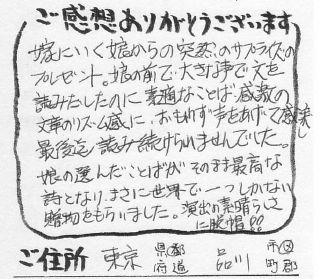 ご感想ありがとうございます
嫁にいく娘からの突然のサプライズの
プレゼント。娘の前で大きな声で文を
読みだしたのに素適なことば、感激の
文章のリズム感に、おもわず声をあげて感涙し
最後迄読み続けられませんでした。
娘の選んだことばがそのまま最高な
詩となり、まさに世界で一つしかない
贈物をもらいました。演出の素晴らしさ
に脱帽!!
ご住所 東京 都道府県 品川 市区町郡